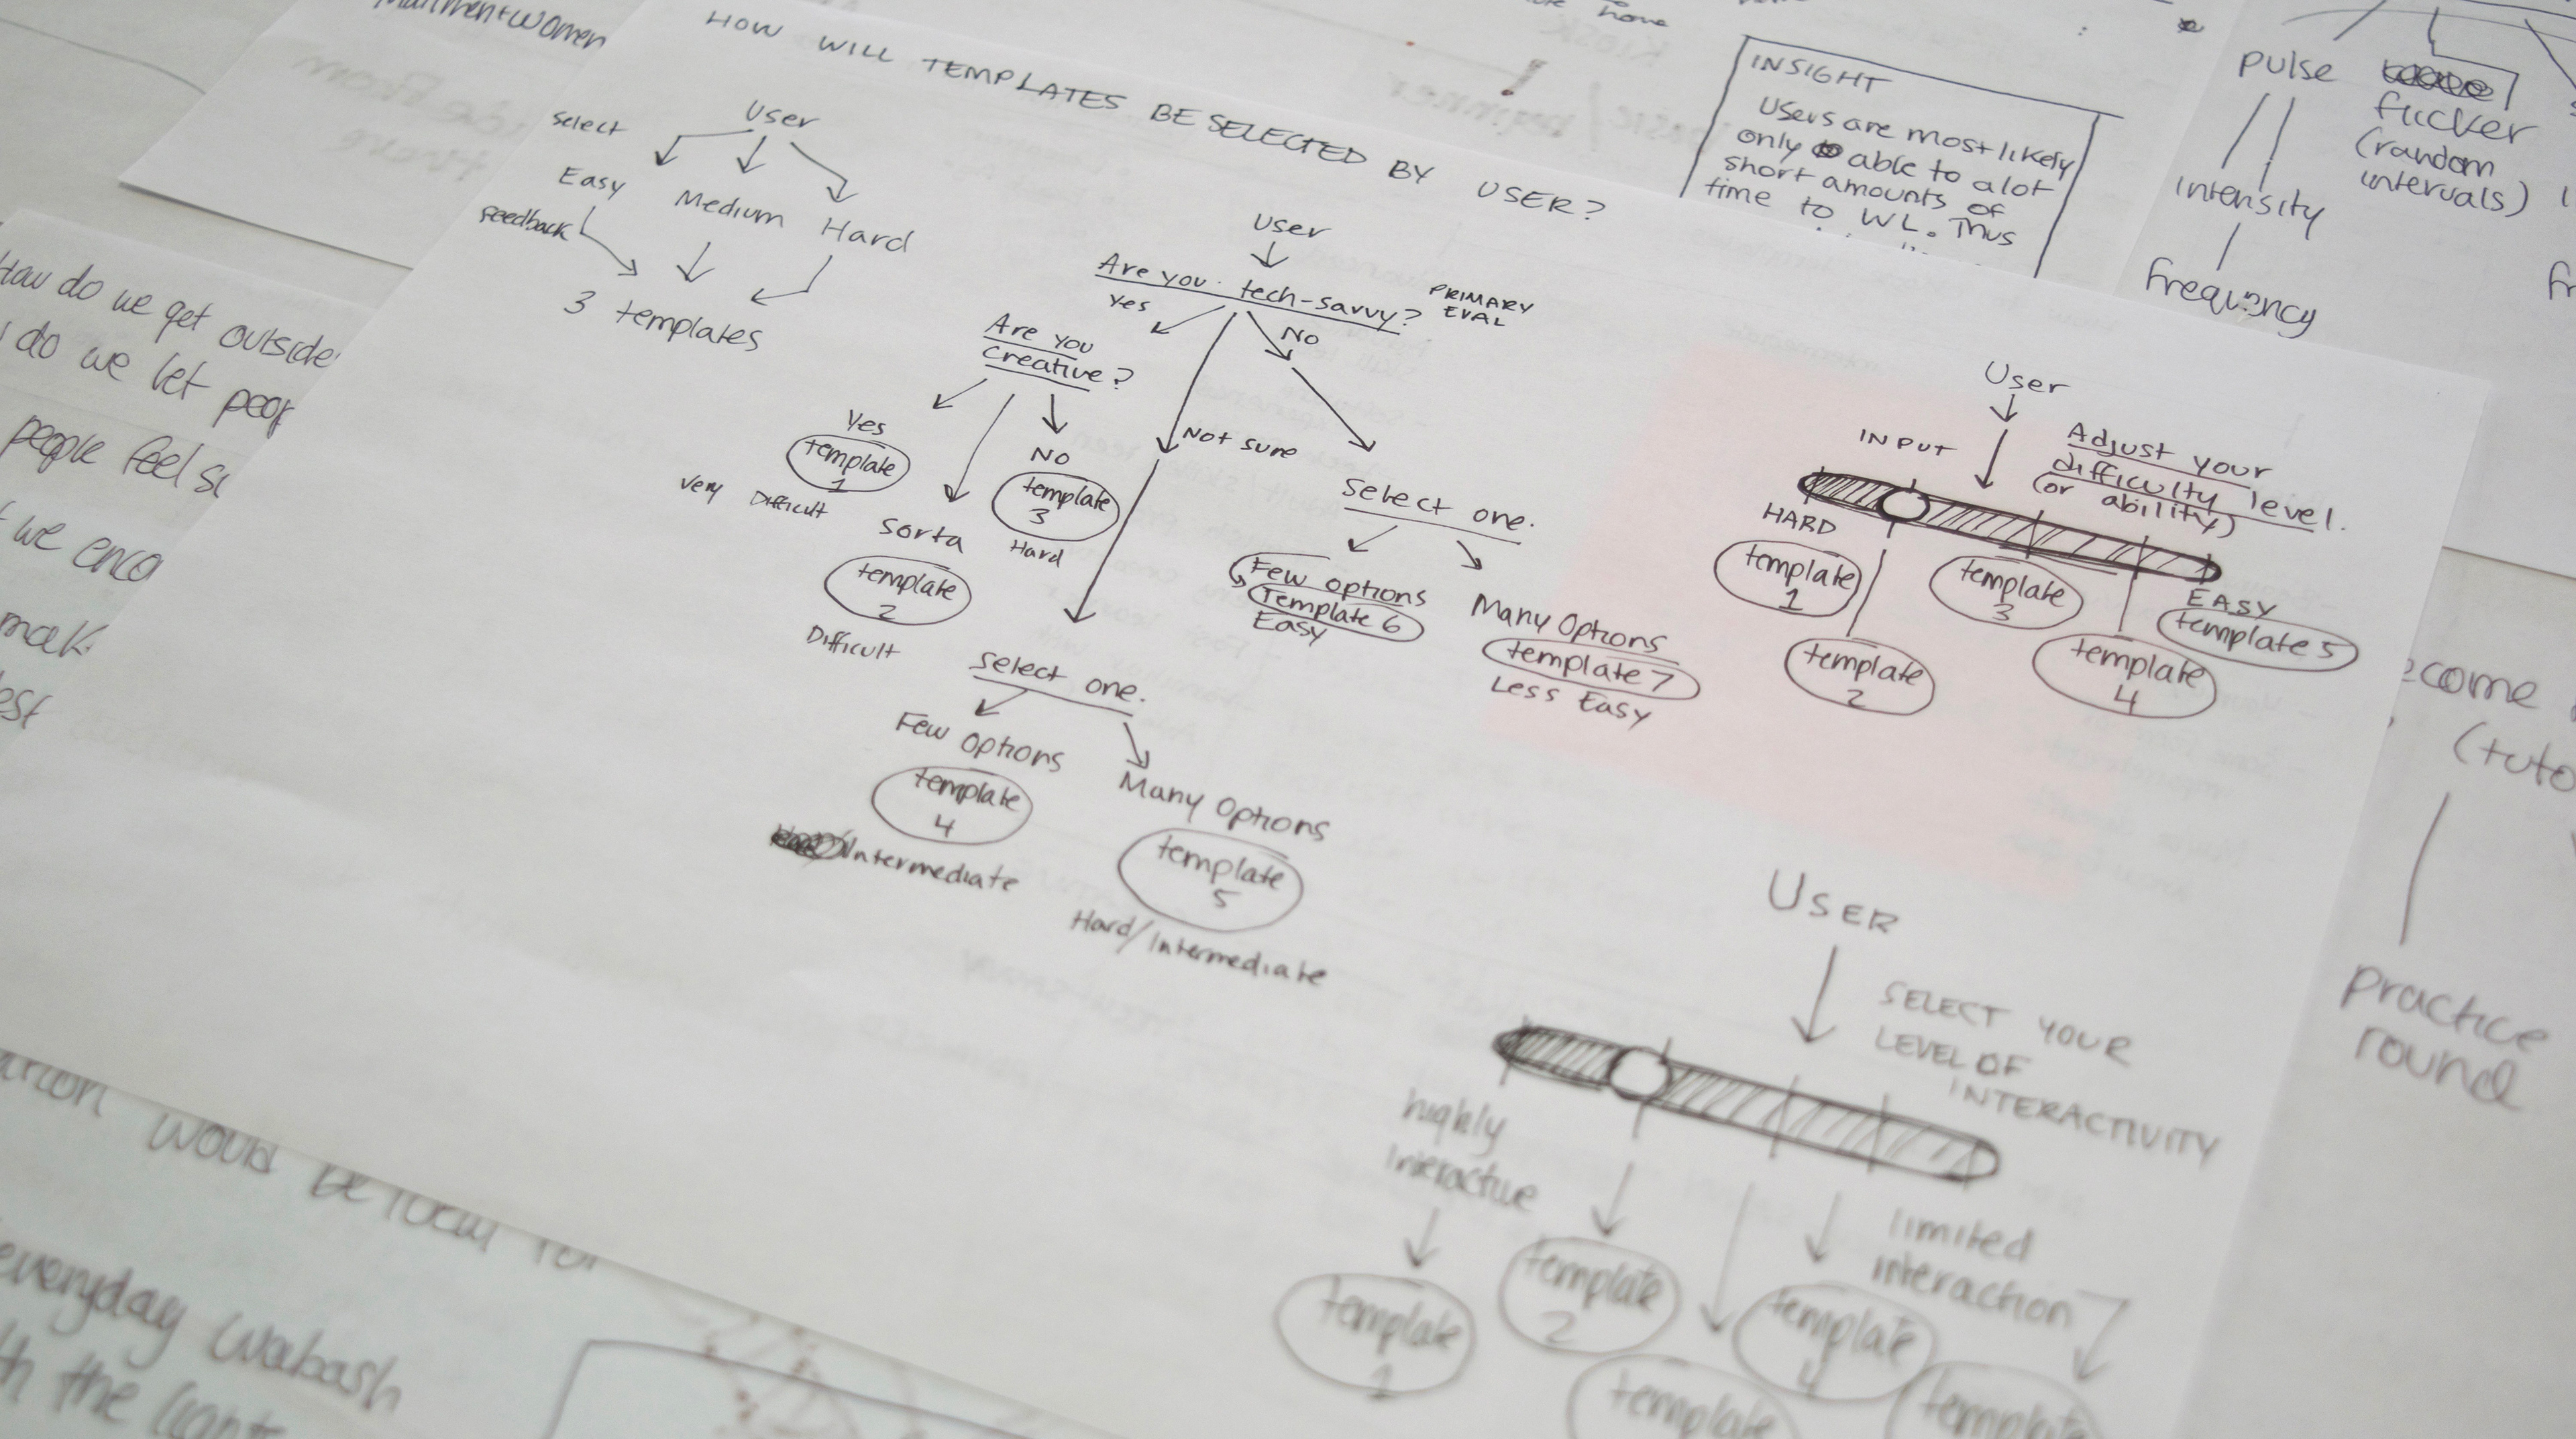 HOW WILL TEMPLATES BE SELECTED BY USER?
select
User
Easy
Medium
Hard
feedback
3 templates
User
Are you tech-savvy?
PRIMARY
EVAL
Yes
NO
Are you
creative?
Yes
template
1
Very Difficult
sorta
template
2
Difficult
NO
template
3
Hard
Not sure
Select one.
Few options
Template 6
Easy
Many Options
template 7
Less Easy
select one.
Few options
template
4
Intermediate
Many Options
template
5
Hard/Intermediate
User
INPUT
Adjust your
difficulty level.
(or ability)
HARD
template
1
template
2
template
3
template
4
EASY
template 5
USER
SELECT YOUR
LEVEL OF
INTERACTIVITY
highly
interactive
template
1
template
2
template
limited
interaction
template
4
template
INSIGHT
Users are most likely
only able to alot
short amounts of
time to WL. Thus
home
pulse
flicker
(random
intervals)
intensity
frequency
practice
round
How do we get outside
do we let
people feel
we
would be
everyday wabash
the